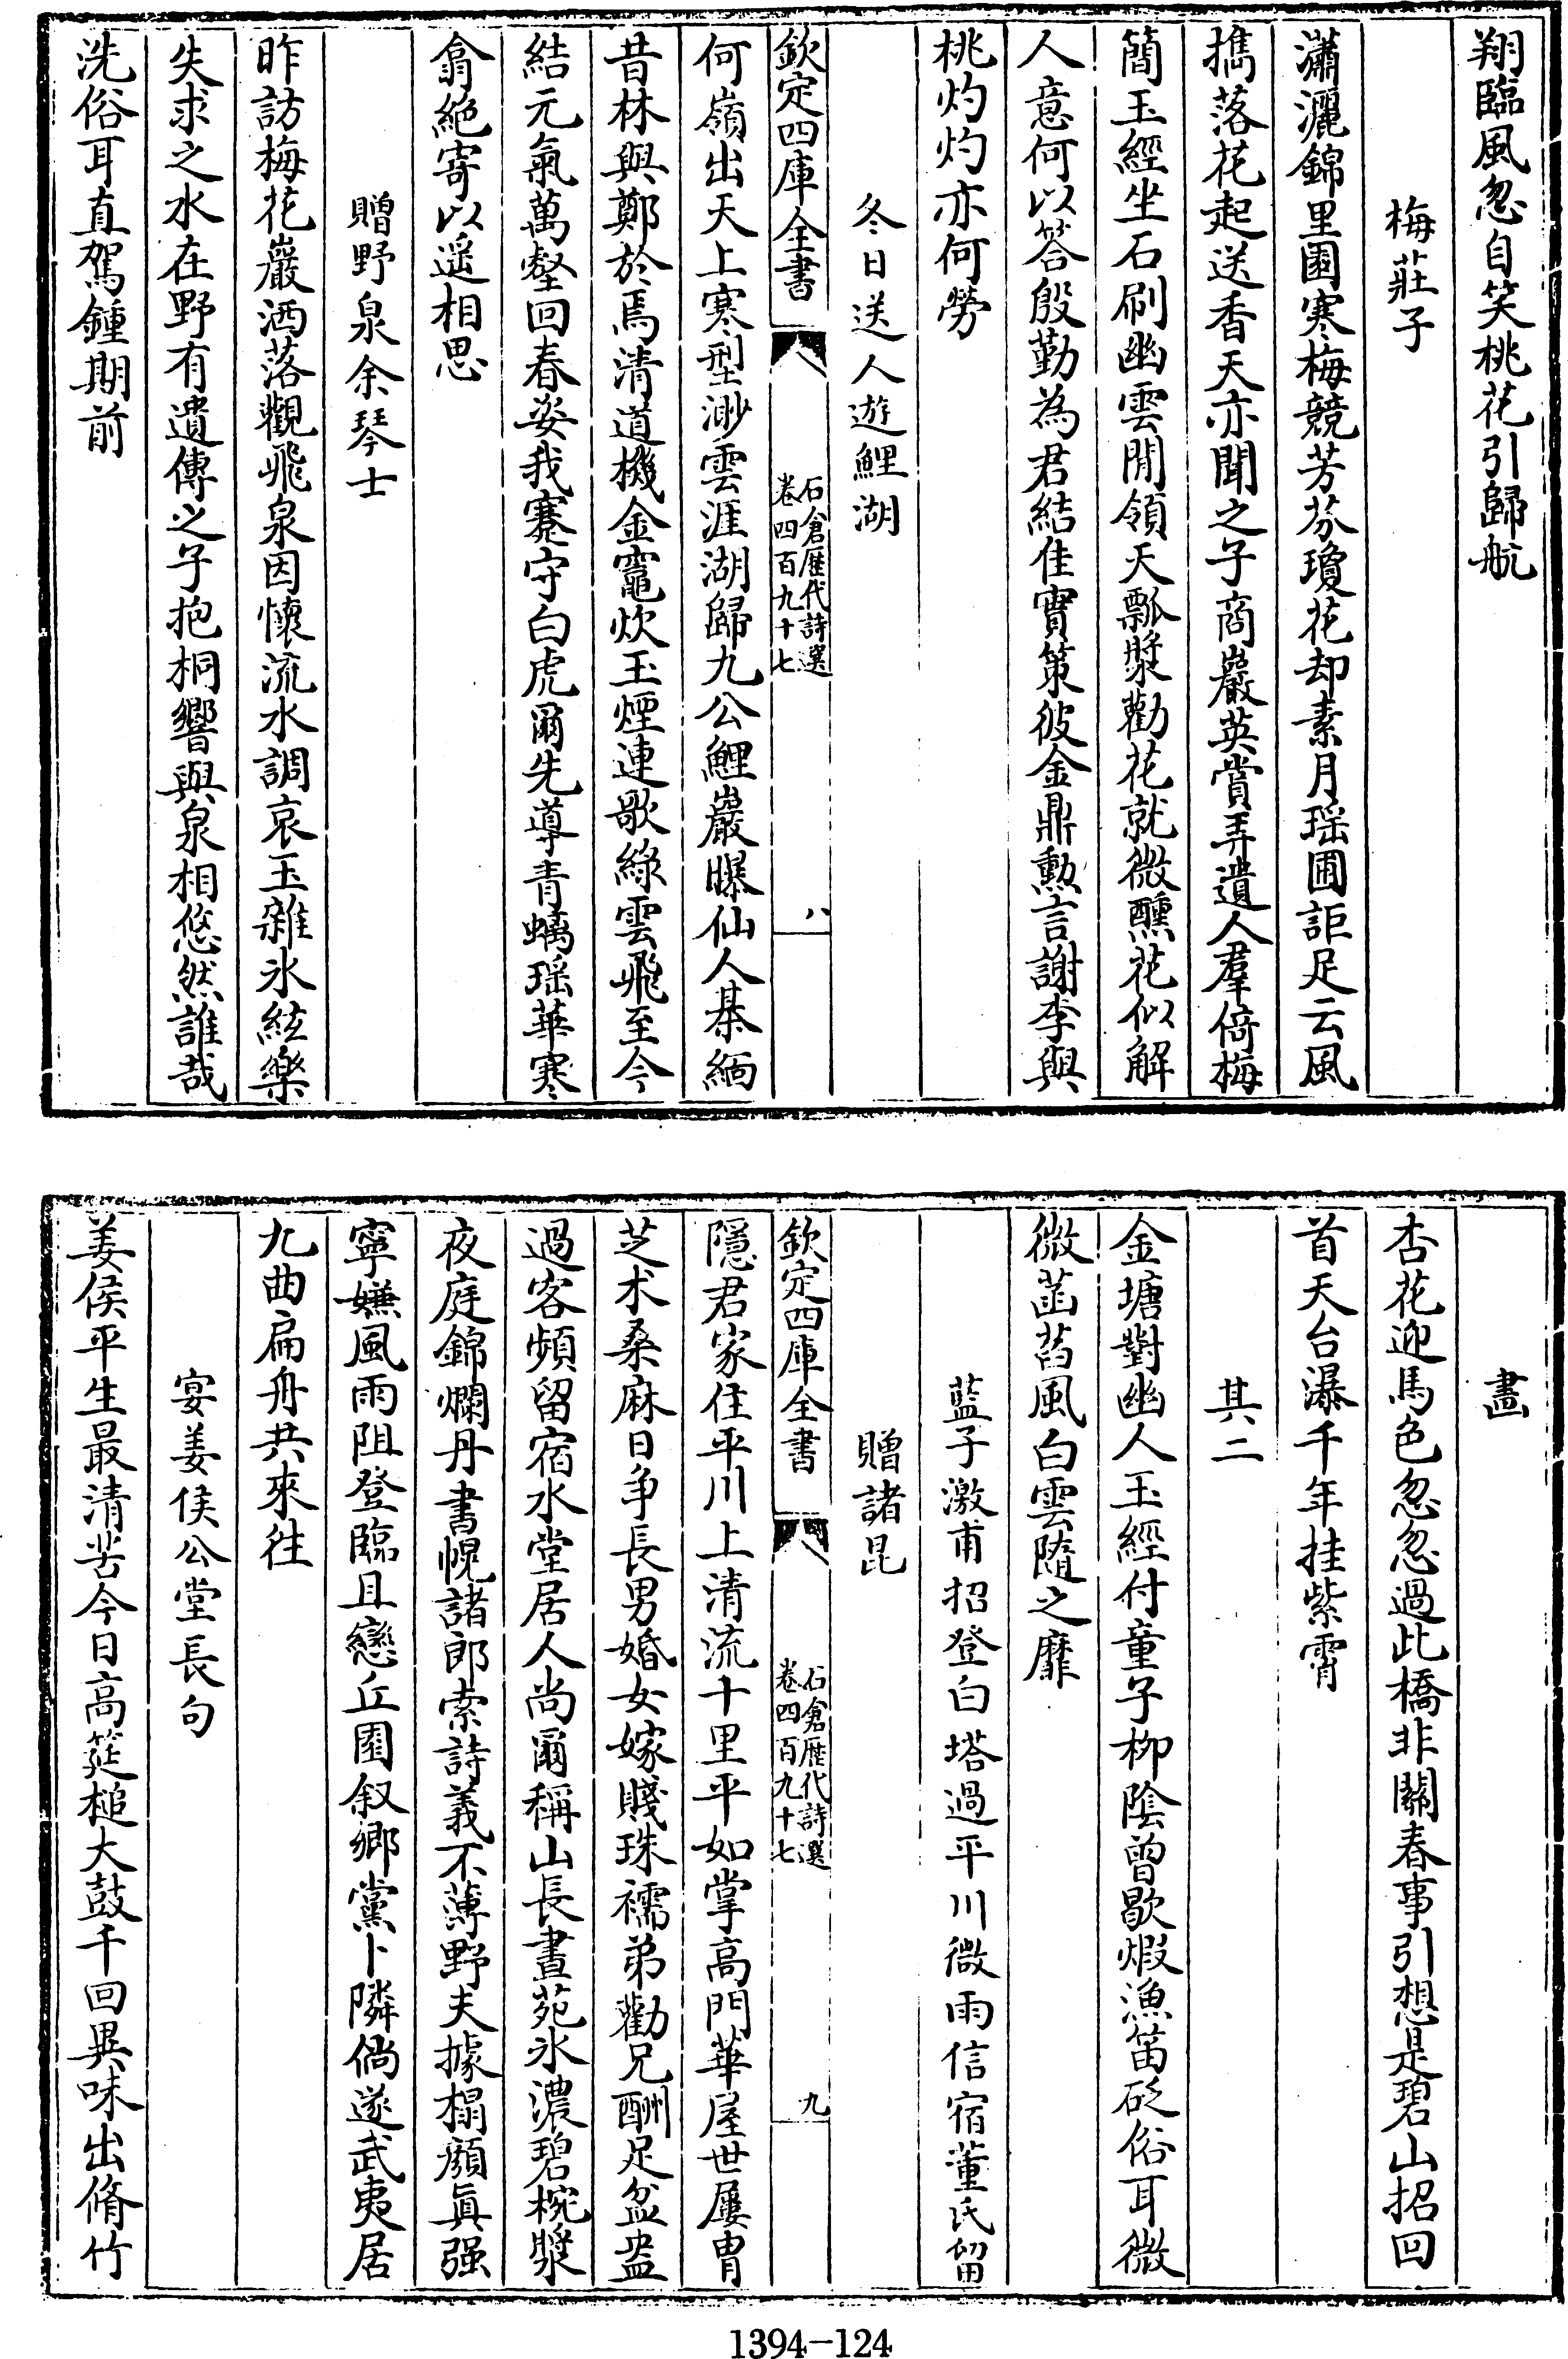 翔臨風忽自笑桃花引歸航
梅莊子
瀟灑錦里園寒梅競芳芬瓊花却素月瑶圃詎足云風
擕落花起送香天亦聞之子商巖英賞弄遺人羣倚梅
簡玉經坐石刷幽雲閒領天瓢漿勸花就微醺花似解
人意何以答殷勤為君結佳實策彼金鼎勲言謝李與
桃灼灼亦何勞
冬日送人遊鯉湖
欽定四庫全書
石倉歴代詩選
卷四百九十七
八
何嶺出天上寒型渺雲涯湖歸九公鯉巖曝仙人棊緬
昔林與鄭於焉清道機金竈炊玉煙連歌綠雲飛至今
結元氣萬壑回春姿我寨守白虎爾先導青螭瑶華寒
翕絶寄以遥相思
贈野泉余琴士
昨訪梅花巖洒落觀飛泉因懷流水調哀玉雜氷絃樂
失求之水在野有遺傳之子抱桐響與泉相悠然誰哉
洗俗耳直駕鍾期前
畫
杏花迎馬色忽忽過此橋非關春事引想是碧山招回
首天台瀑千年挂紫霄
其二
金塘對幽人玉經付童子柳陰曾歇煆漁笛砭俗耳微
微菡萏風白雲隨之靡
藍子激甫招登白塔過平川微雨信宿董氏留
贈諸昆
欽定四庫全書
石倉歴代詩選
卷四百九十七
九
隱君家住平川上清流十里平如掌高門華屋世屢胄
芝术桑麻日争長男婚女嫁賤珠襦弟勸兄酬足盆盎
過客頻留宿水堂居人尚爾稱山長晝苑氷濃碧椀漿
夜庭錦爛丹書幌諸郎索詩義不薄野夫據榻顔真强
寧嫌風雨阻登臨且戀丘園叙鄉黨卜隣倘遂武夷居
九曲扁舟共來往
宴姜侯公堂長句
姜侯平生最清苦今日高筵槌大鼓千回異味出脩竹
1394-124